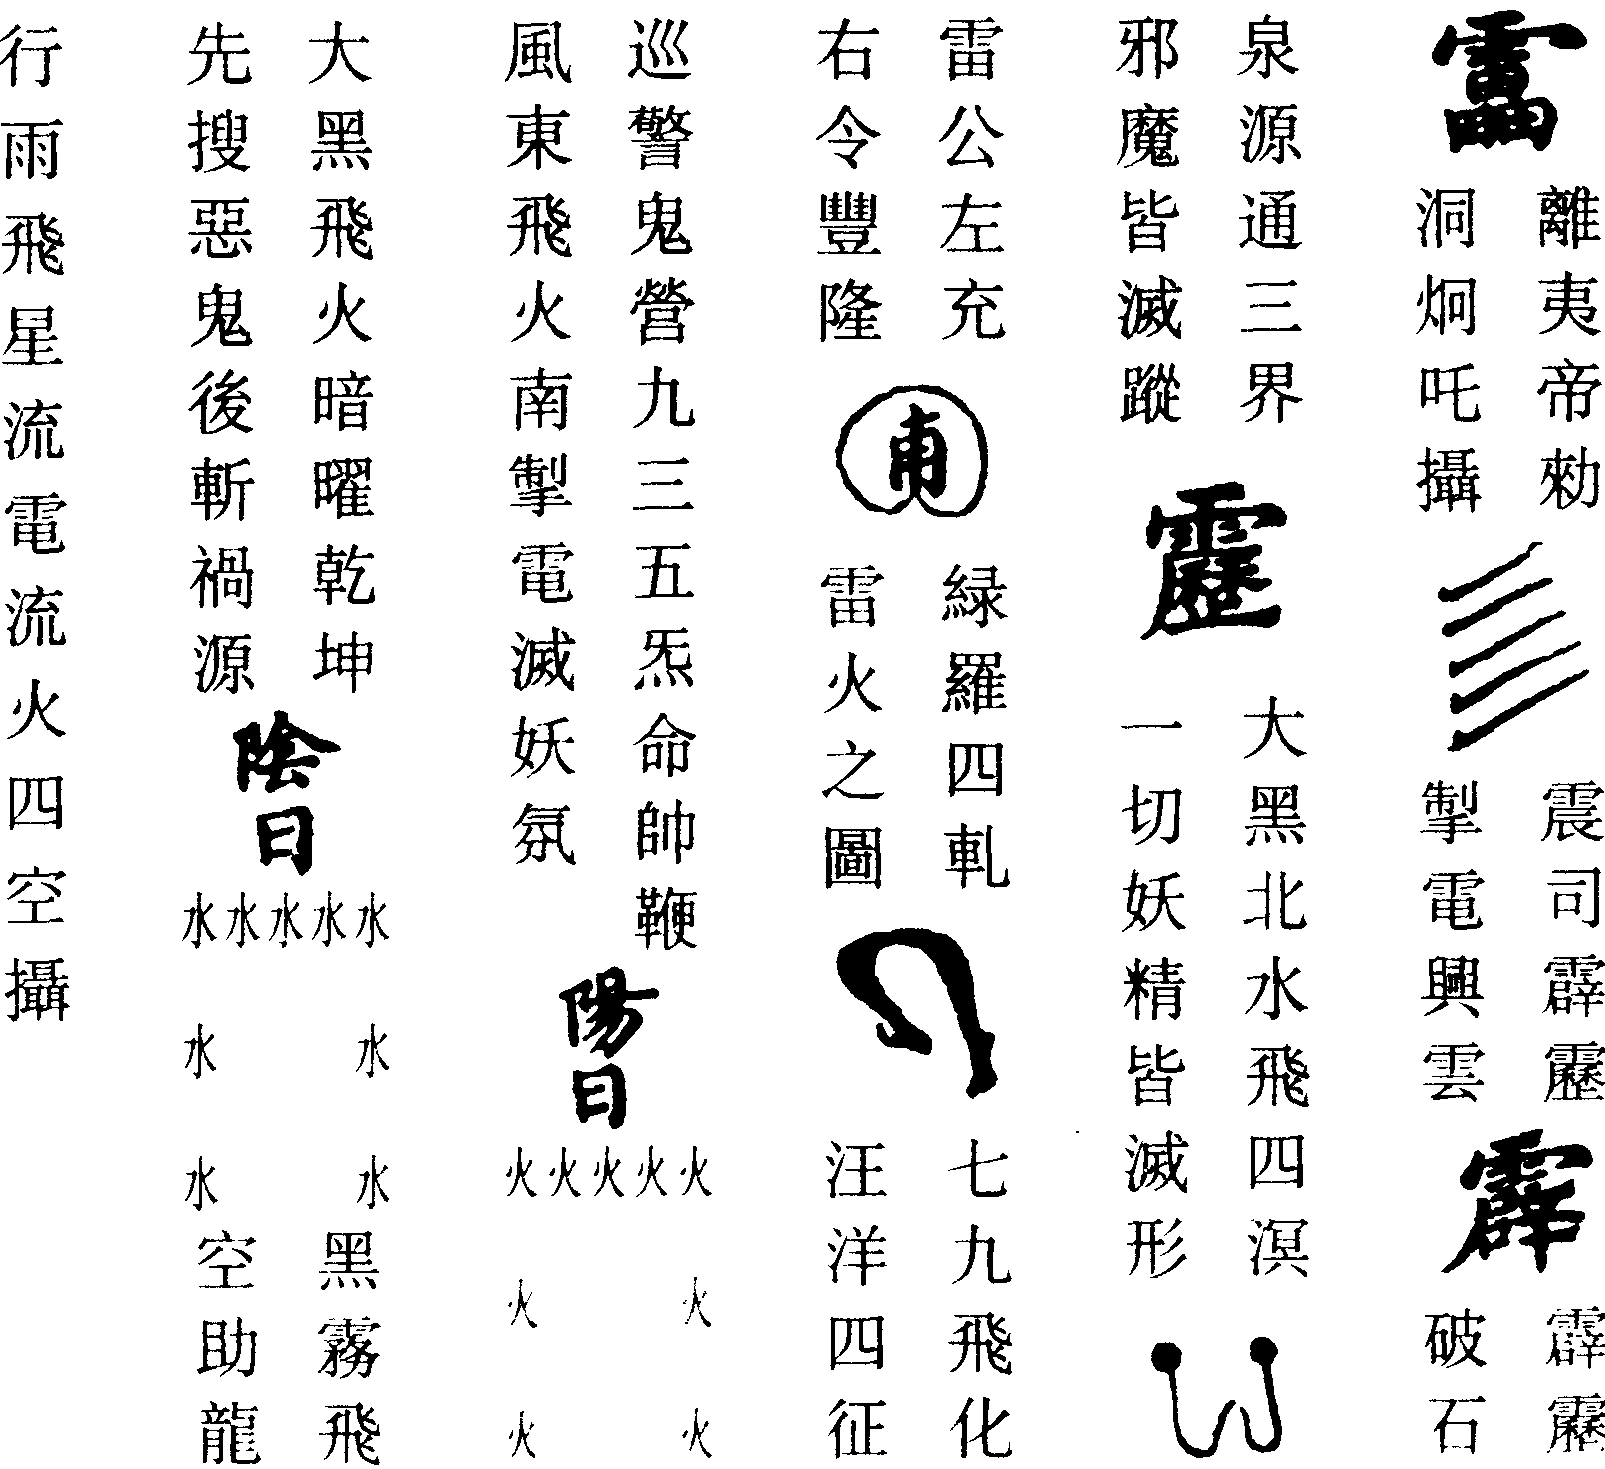 靁
離夷帝勑
洞炯吒攝
震司霹靂
掣電興雲
霹
霹靂
破石
泉源通三界
邪魔皆滅蹤
靂
大黑北水飛四溟
一切妖精皆滅形
雷公左充
右令豐隆
緑羅四軋
雷火之圖
七九飛化
汪洋四征
巡警鬼營九三五炁命帥鞭
風東飛火南掣電滅妖氛
陽日
火火火火火
火火
火火
大黑飛火暗曜乾坤
先搜惡鬼後斬禍源
陰日
水水水水水
水水
水水
黑霧飛
空助龍
行雨飛星流電流火四空攝